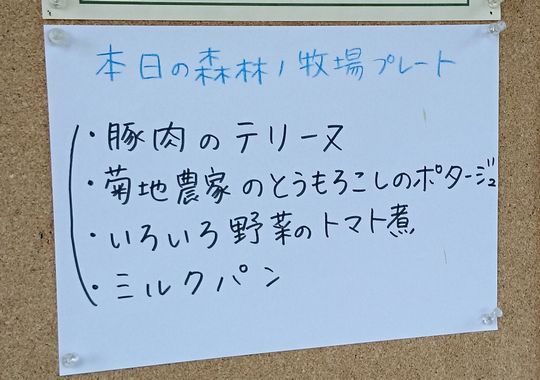 本日の森林ノ牧場プレート
・豚肉のテリーヌ
・菊地農家のとうもろこしのポタージュ
・いろいろ野菜のトマト煮
・ミルクパン